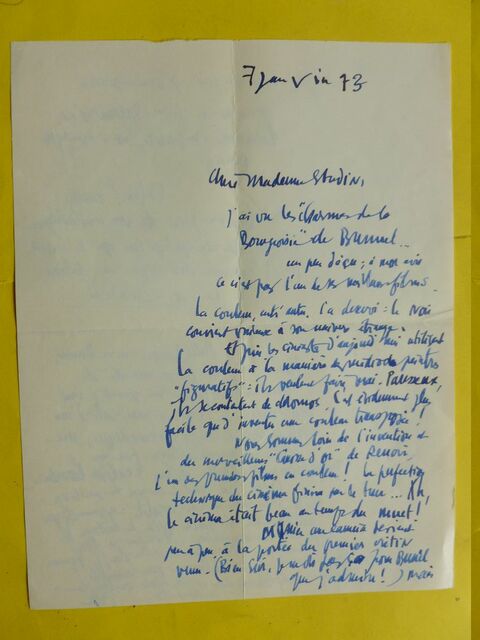 7 janvier 73
Chère Madame Studin,
J'ai vu les "Charmes de la
Bourgeoisie" de Bunuel...
un peu déçu ; à mon avis
ce n'est pas l'un de ses meilleurs films.
La couleur, entre autre, l'a desservi : le noir
convient mieux à son univers étrange.
Et puis les cinéastes d'aujourd'hui utilisent
la couleur à la manière des médiocres peintres
"figuratifs" : ils veulent faire vrai. Paresseux,
ils se contentent de chromos. C'est évidemment plus
facile que d'inventer une couleur transposée !
Nous sommes loin de l'invention
du merveilleux "Carosse d'or" de Renoir,
l'un des premiers films en couleur ! La perfection
technique du cinéma finira par le tuer... Ah,
le cinéma était beau au temps du muet !
une caméra devient
peu à peu à la portée du premier crétin
venu. (Bien sûr, je ne dis pas ça pour Bunuel
que j'admire !) mais